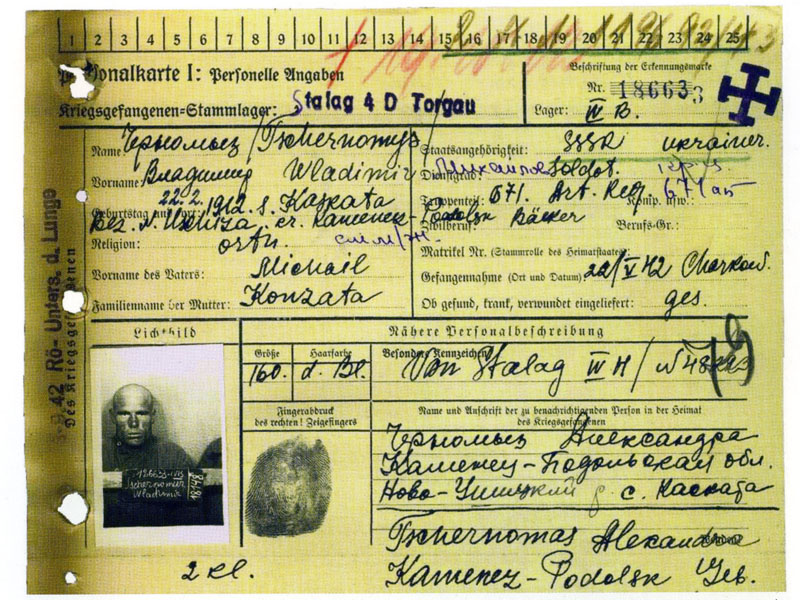 1 2 3 4 5 6 7 8 9 10 11 12 13 14 15 16 17 18 19 20 21 22 23 24 25
Personalkarte I: Personelle Angaben
Beschriftung der Erkennungsmarke
Nr. 186633
Kriegsgefangenen-Stammlager: Stalag 4 D Torgau
Lager: IV B.
Name: Черномыз /Tschernomys/
Staatsangehörigkeit: SSSR ukrainer.
Vorname: Владимир Wladimir
Dienstgrad: Soldat.
Geburtstag und -ort: 22.2.1912. s. Kaskata
Truppenteil: 671. Art. Reg. Komp. usw.: 671 ап
Bez. N. Uschiza. kr. Kamenez-Podolsk
Zivilberuf: Bäcker Berufs-Gr.:
Religion: orth.
Matrikel Nr. (Stammrolle des Heimatstaates):
Vorname des Vaters: Michail
Gefangennahme (Ort und Datum): 22/V 42 Charkow.
Familienname der Mutter: Konzata
Ob gesund, krank, verwundet eingeliefert: ges.
42 Rö- Unters. d. Lunge
Des Kriegsgefangenen
Lichtbild
Nähere Personalbeschreibung
Größe Haarfarbe Besondere Kennzeichen:
160. d. Bl. Von Stalag IV H/
Fingerabdruck
des rechten! Zeigefingers
Name und Anschrift der zu benachrichtigenden Person in der Heimat
des Kriegsgefangenen
Черномыз Александра
Каменец-Подольская обл.
Ново-Ушицкий р. с. Каската
Tschernomys
Wladimir
Tschernomas Alexandra
Kamenez-Podolsk Geb.
2 kl.